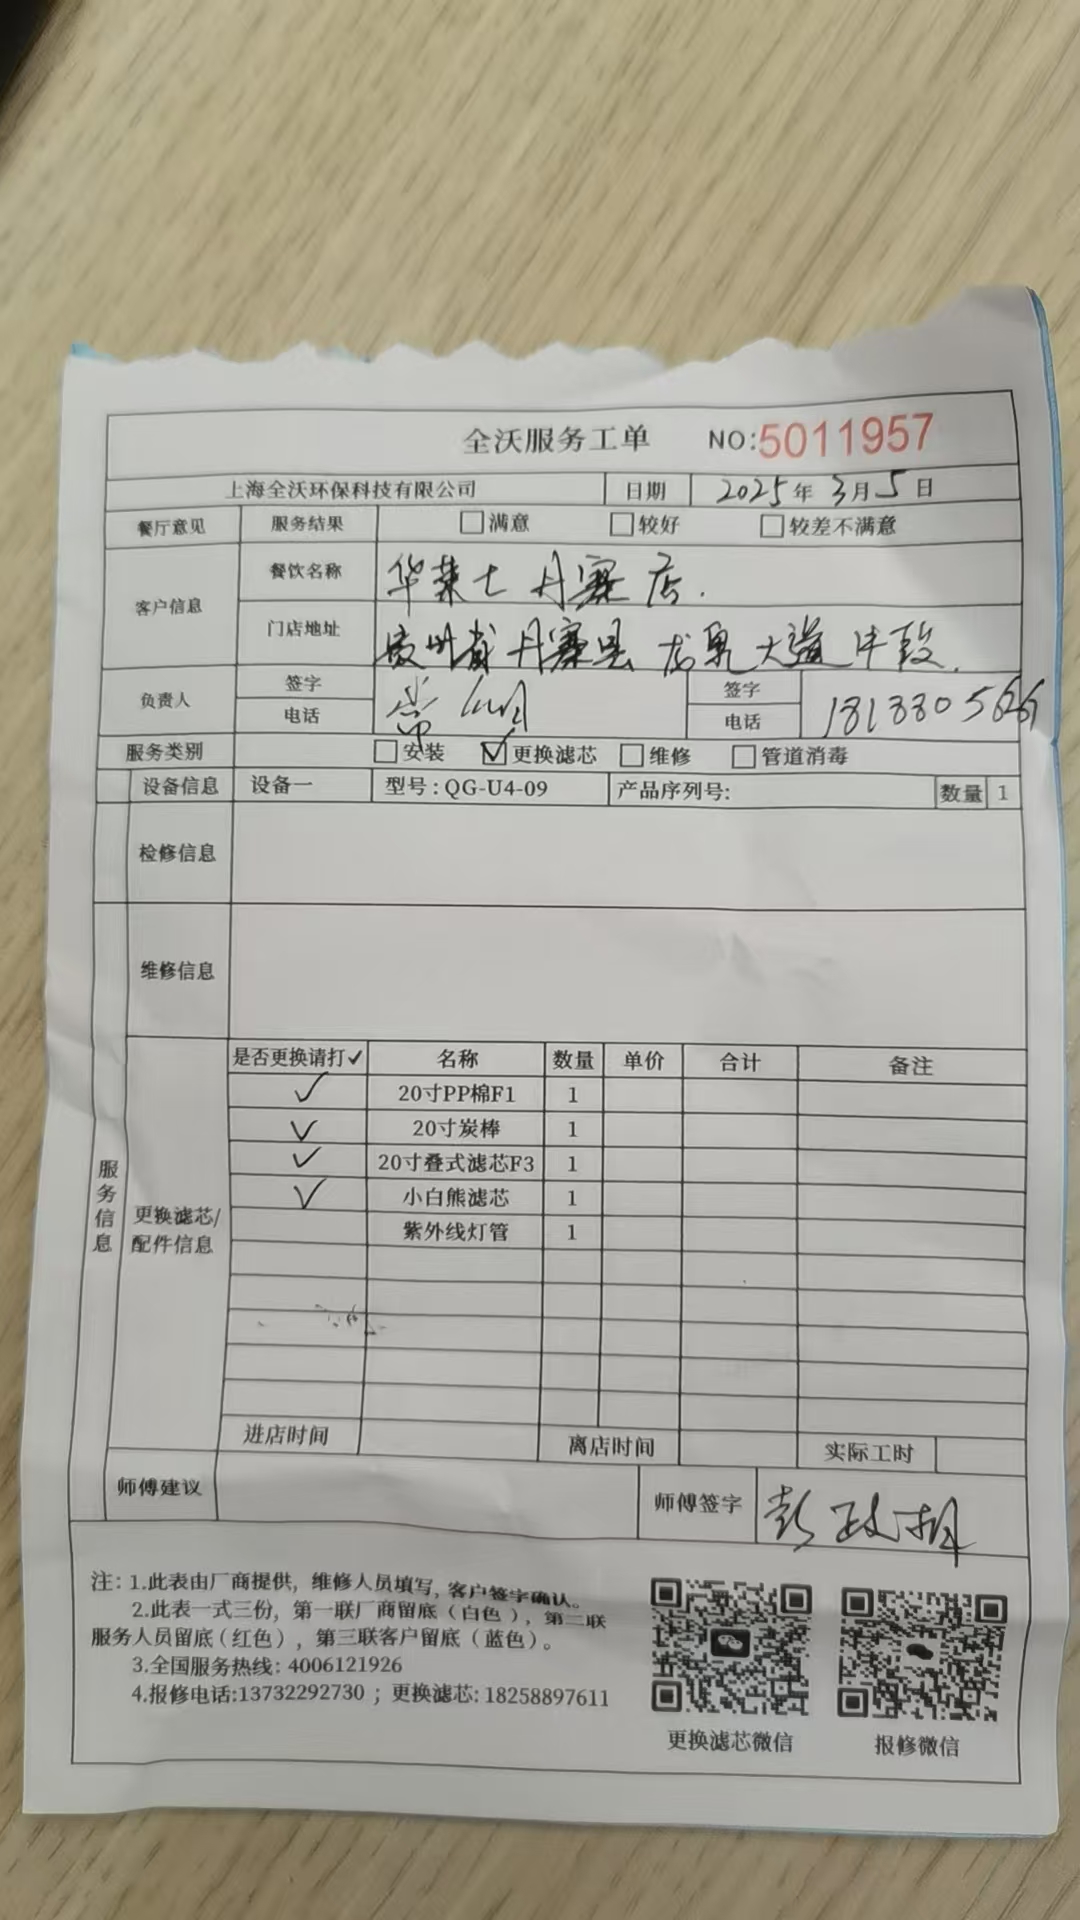 全沃服务工单 NO:5011957
上海全沃环保科技有限公司 日期 2025年3月5日
餐厅意见 服务结果 □满意 □较好 □较差不满意
客户信息 餐饮名称 华莱士丹寨店.
门店地址 贵州省丹寨县龙泉大道中段.
负责人 签字 签字
电话 电话
服务类别 □安装 ☑更换滤芯 □维修 □管道消毒
设备信息 设备一 型号:QG-U4-09 产品序列号: 数量 1
检修信息
维修信息
服务信息
更换滤芯/
配件信息
是否更换请打✓ 名称 数量 单价 合计 备注
✓ 20寸PP棉F1 1
✓ 20寸炭棒 1
✓ 20寸叠式滤芯F3 1
✓ 小白熊滤芯 1
紫外线灯管 1
进店时间 离店时间 实际工时
师傅建议 师傅签字
注:1.此表由厂商提供,维修人员填写,客户签字确认。
2.此表一式三份,第一联厂商留底(白色),第二联
服务人员留底(红色),第三联客户留底(蓝色)。
3.全国服务热线:4006121926
4.报修电话:13732292730;更换滤芯:18258897611
更换滤芯微信 报修微信